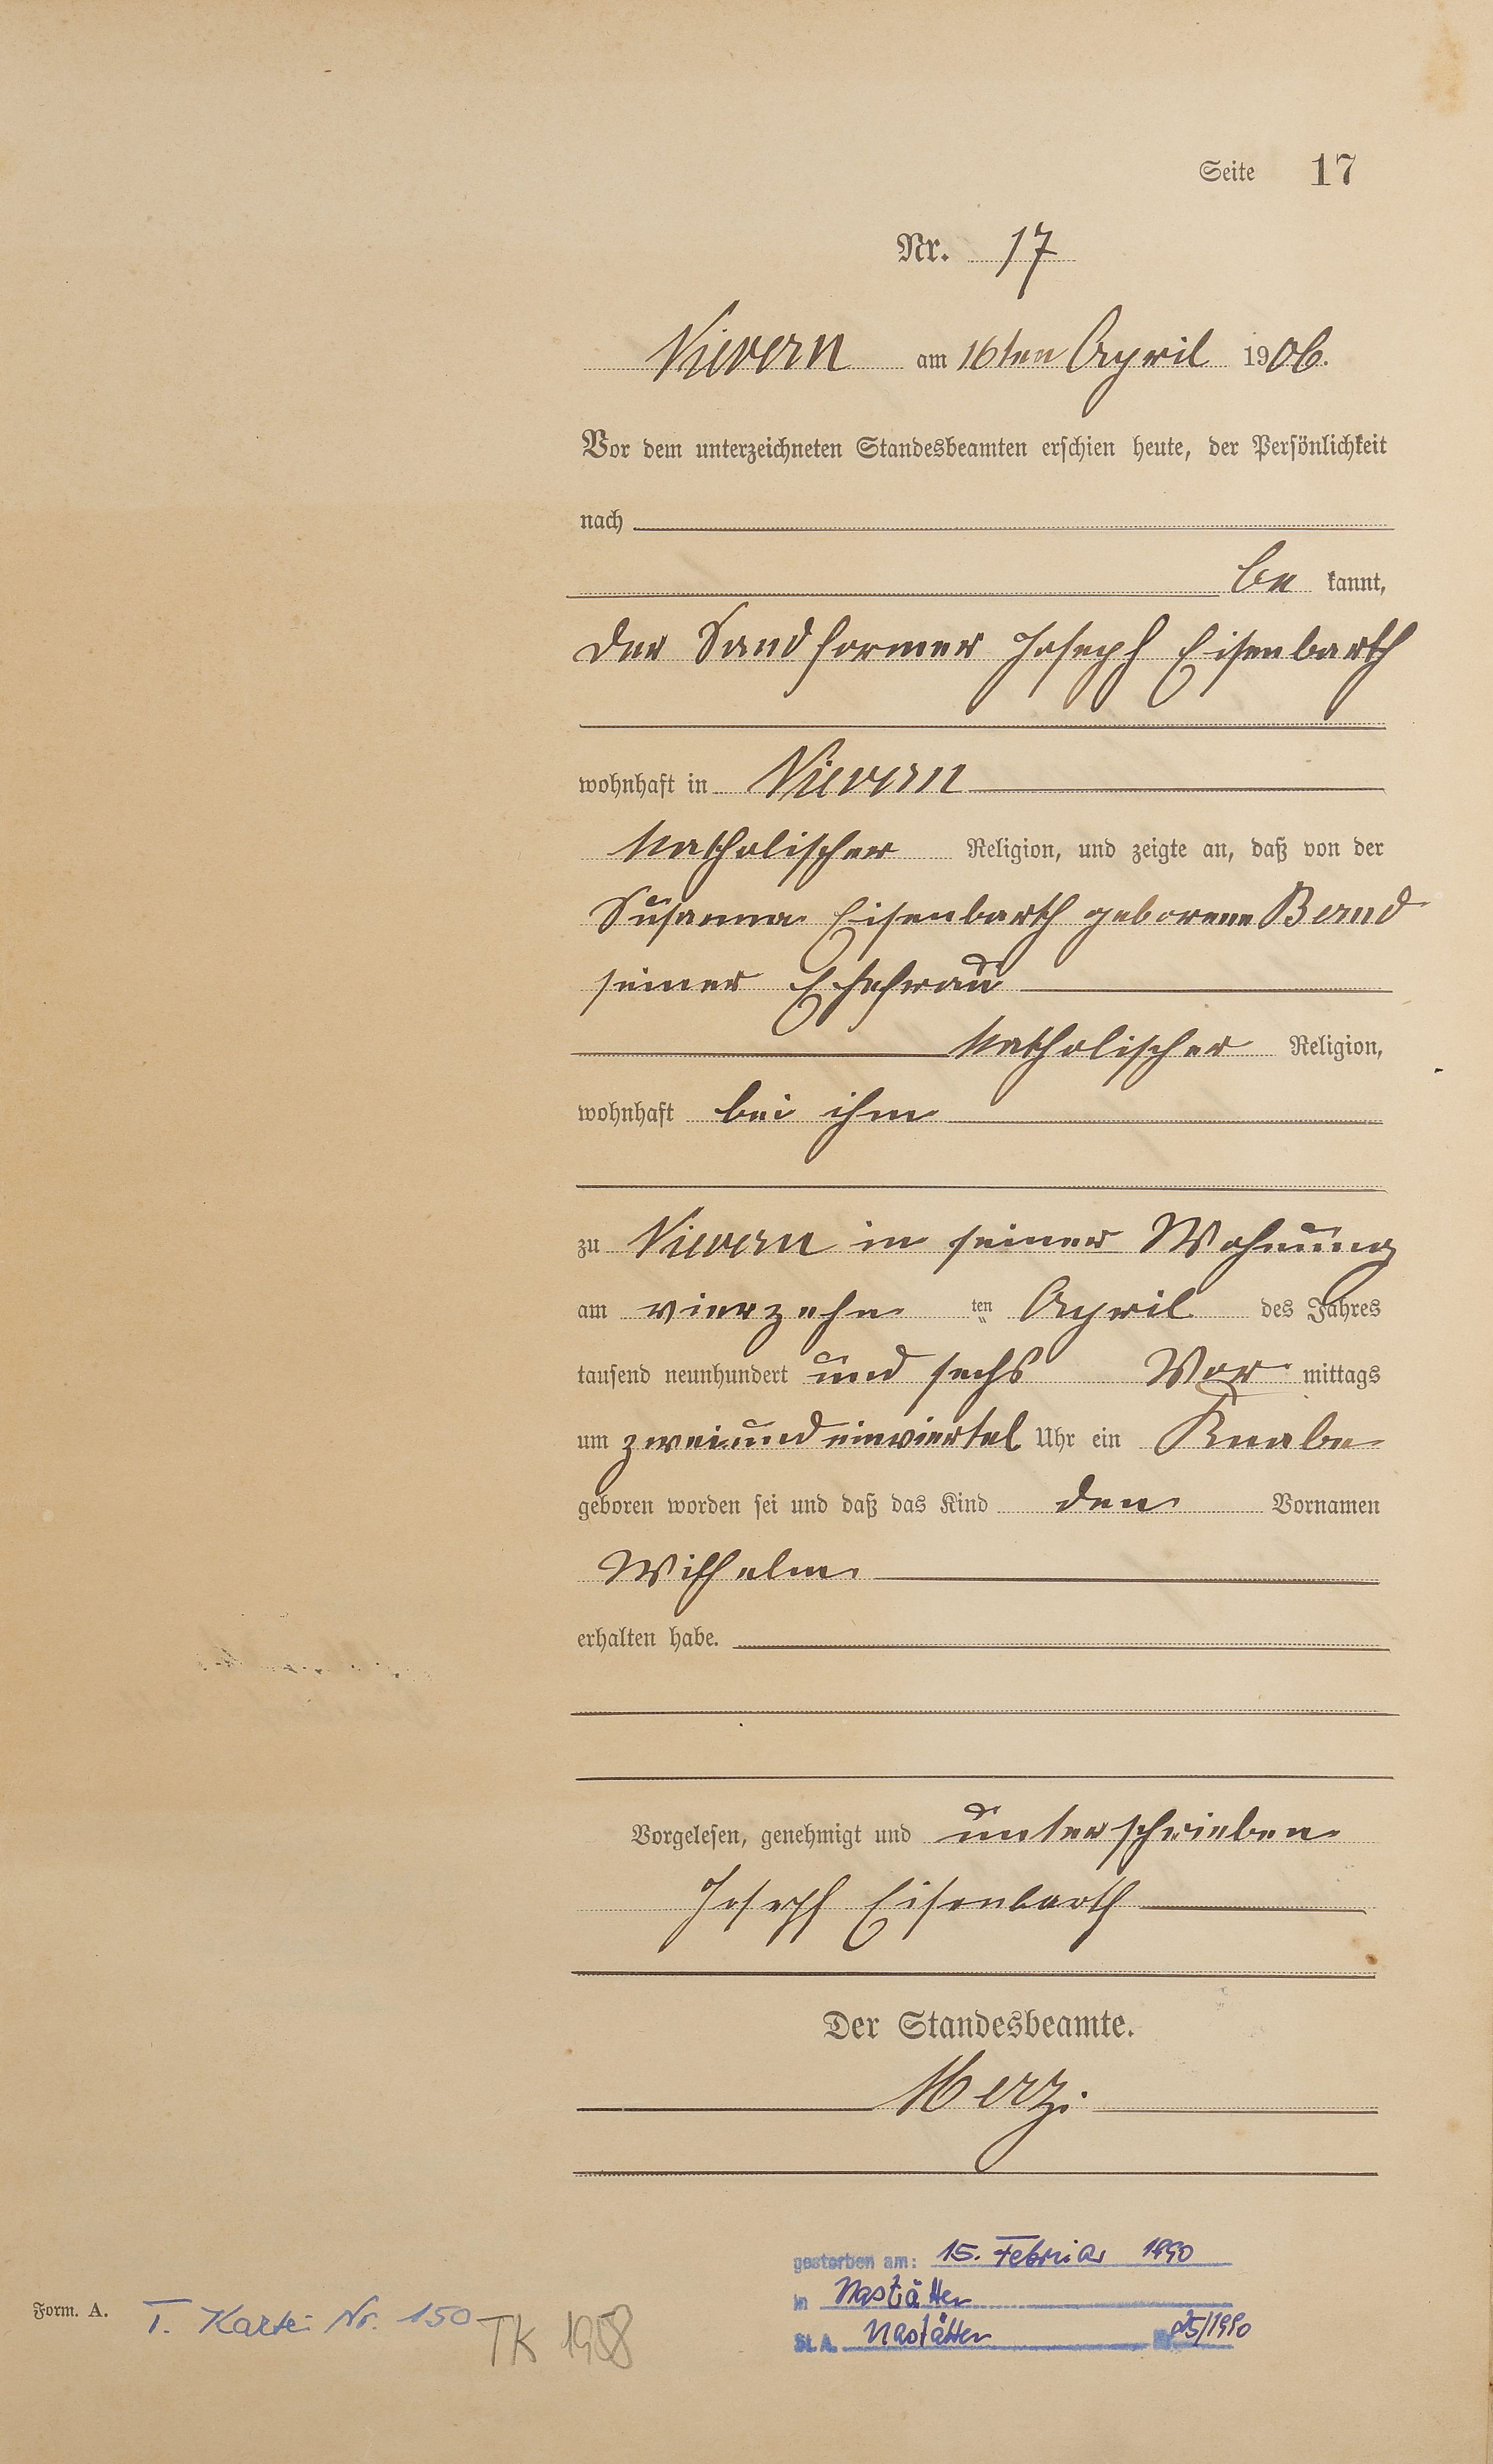 Seite 17
Nr. 17
Nievern am 16ten April 1906.
Vor dem unterzeichneten Standesbeamten erschien heute, der Persönlichkeit
nach
be kannt,
der Sandformer Joseph Eisenbarth
wohnhaft in Nievern
katholischer Religion, und zeigte an, daß von der
Susanna Eisenbarth geborene Bernd
seiner Ehefrau
katholischer Religion,
wohnhaft bei ihm
zu Nievern in seiner Wohnung
am vierzehn ten April des Jahres
tausend neunhundert und sechs Vor mittags
um zwei und einviertel Uhr ein Knabe
geboren worden sei und daß das Kind den Vornamen
Wilhelm
erhalten habe.
Vorgelesen, genehmigt und unterschrieben
Joseph Eisenbarth
Der Standesbeamte.
Merz.
gestorben am: 15. Februar 1990
in Nastätten
St. A. Nastätten Nr. 25/1990
Form. A. T. Kartei Nr. 150 TK 1908